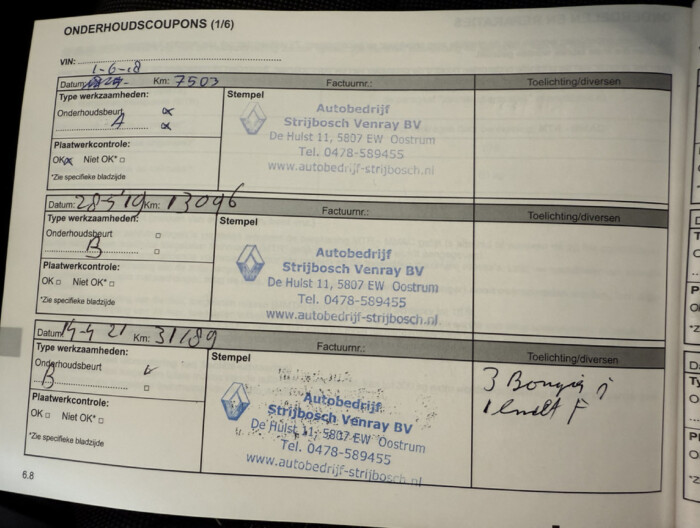 ONDERHOUDSCOUPONS (1/6)
VIN:
1-6-18
Datum: Km: 7503 Factuurnr.: Toelichting/diversen
Type werkzaamheden: Stempel
Onderhoudsbeurt
A
Plaatwerkcontrole:
OK Niet OK*
*Zie specifieke bladzijde
Autobedrijf
Strijbosch Venray BV
De Hulst 11, 5807 EW Oostrum
Tel. 0478-589455
www.autobedrijf-strijbosch.nl
Datum: 28-5'19 Km: 13096 Factuurnr.: Toelichting/diversen
Type werkzaamheden: Stempel
Onderhoudsbeurt
B
Plaatwerkcontrole:
OK Niet OK*
*Zie specifieke bladzijde
Autobedrijf
Strijbosch Venray BV
De Hulst 11, 5807 EW Oostrum
Tel. 0478-589455
www.autobedrijf-strijbosch.nl
Datum: 14-4 21 Km: 31189 Factuurnr.: Toelichting/diversen
Type werkzaamheden: Stempel
Onderhoudsbeurt
B
Plaatwerkcontrole:
OK Niet OK*
*Zie specifieke bladzijde
Autobedrijf
Strijbosch Venray BV
De Hulst 11, 5807 EW Oostrum
Tel. 0478-589455
www.autobedrijf-strijbosch.nl
3
F
6.8